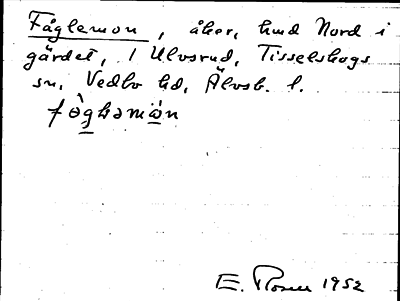 Fåglemon, åker, hmd Nord i
gärdet, 1 Ulvsrud, Tisselskogs
sn, Vedbo hd, Älvsb. l.
fò̱gləmön
E. Rosen 1952